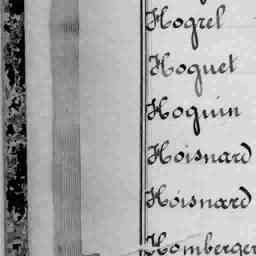 Hogrel
Hoguet
Hoguin
Hoisnard
Hoisnard
Homberger